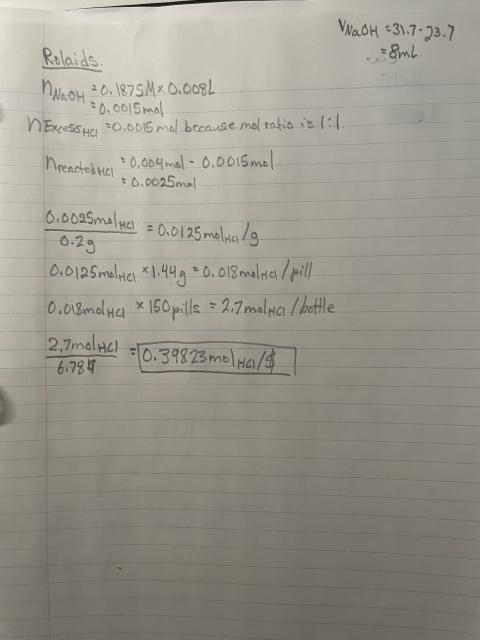 VNaOH = 31.7 - 23.7
= 8mL
Rolaids.
nNaOH = 0.1875M × 0.008L
= 0.0015mol
nExcessHCl = 0.0015mol because mol ratio is 1:1.
nreactedHCl = 0.004mol - 0.0015mol
= 0.0025mol
0.0025molHCl / 0.2g = 0.0125molHCl/g
0.0125molHCl × 1.44g = 0.018molHCl/pill
0.018molHCl × 150pills = 2.7molHCl/bottle
2.7molHCl / 6.78$ = 0.39823molHCl/$